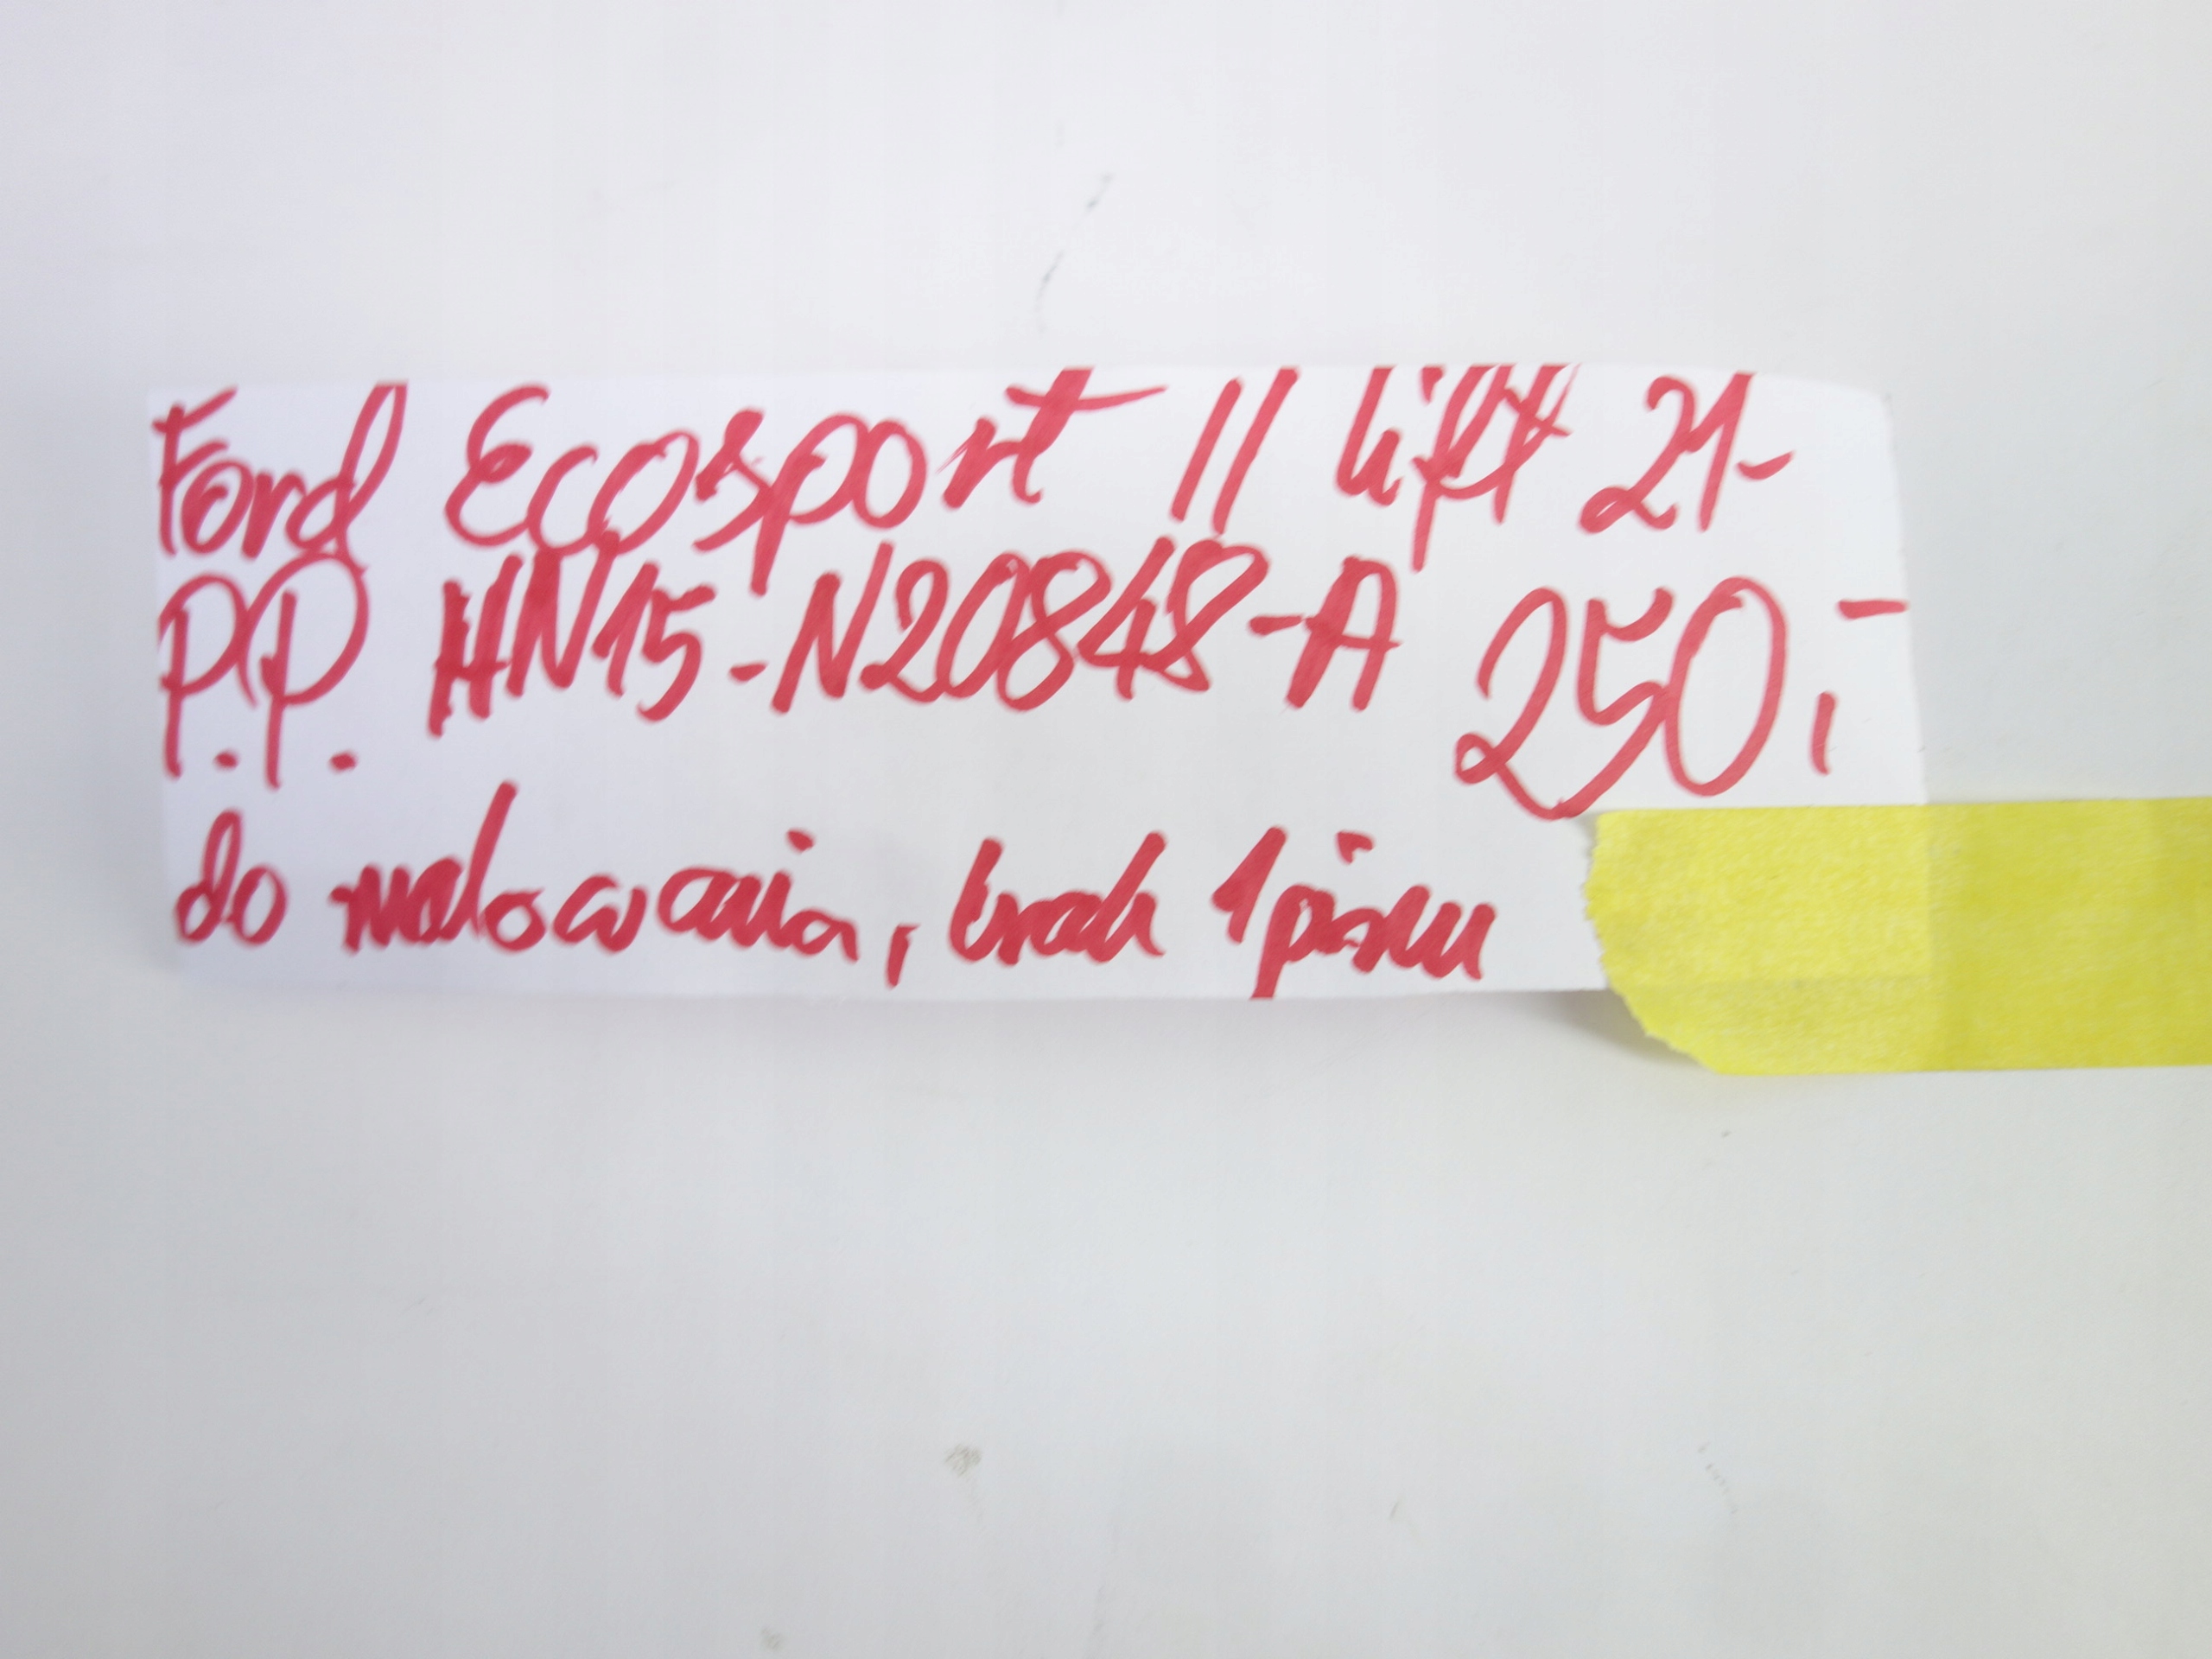 Ford Ecosport II lift 21-
P.P. HN15-N20848-A 250,-
do malowania, brak 1 pinu